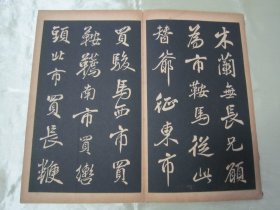 木蘭無長兄願
為市鞍馬從此
替爺征東市
買駿馬西市買
鞍韉南市買轡
頭北市買長鞭